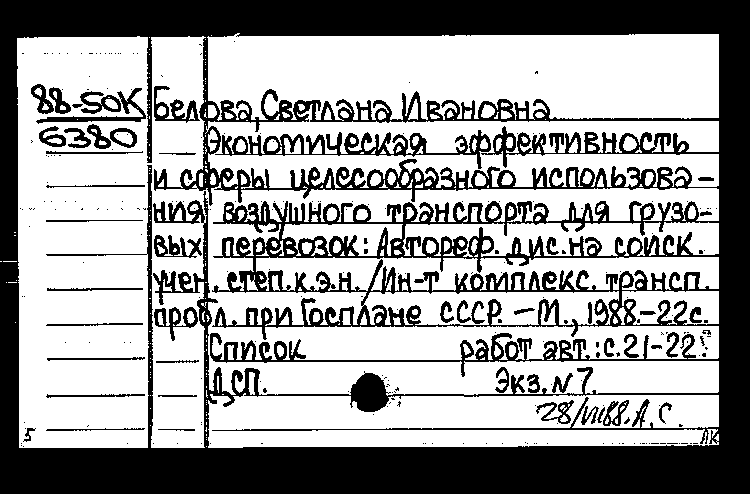 88-50К Белова, Светлана Ивановна
6380 Экономическая эффективность
и сферы целесообразного использова-
ния воздушного транспорта для грузо-
вых перевозок: Автореф. дис. на соиск.
учен. степ. к.э.н. /Ин-т комплекс. трансп.
пробл. при Госплане СССР. -М., 1988.-22с.
Список работ авт.: с.21-22.
ДСП. Экз. N 7.
28/VII88. А. С.
5 ЛК